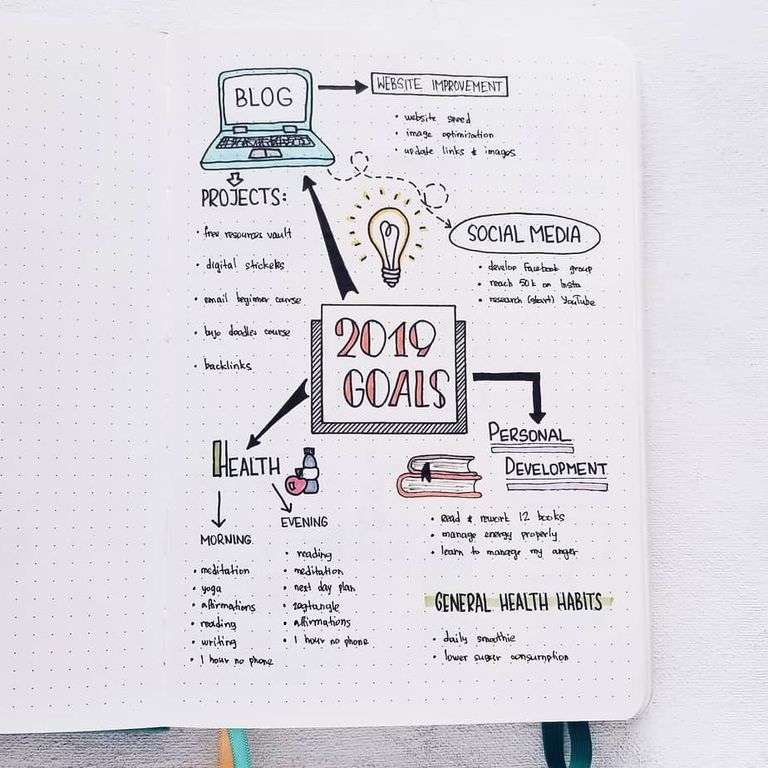 BLOG
WEBSITE IMPROVEMENT
• website speed
• image optimization
• update links & images
PROJECTS:
• free resources vault
• digital stickers
• email beginner course
• bujo doodles course
• backlinks
SOCIAL MEDIA
• develop Facebook group
• reach 50k on Insta
• research (start) YouTube
2019
GOALS
HEALTH
MORNING
• meditation
• yoga
• affirmations
• reading
• writing
• 1 hour no phone
EVENING
• reading
• meditation
• next day plan
• zentangle
• affirmations
• 1 hour no phone
PERSONAL
DEVELOPMENT
• Read & rework 12 books
• manage energy properly
• learn to manage my anger
GENERAL HEALTH HABITS
• daily smoothie
• lower sugar consumption